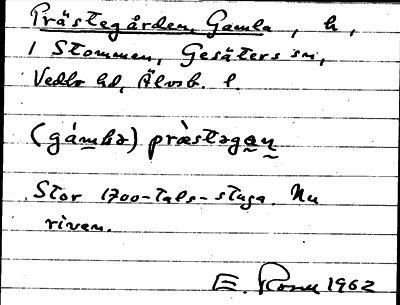 Prästegården, Gamla, h,
1 Stommen, Gesäters sn,
Vedbo hd, Älvsb. l.
(gámḷa) prὲstəgaṇ
Stor 1700-tals-stuga. Nu
riven.
E. 1962